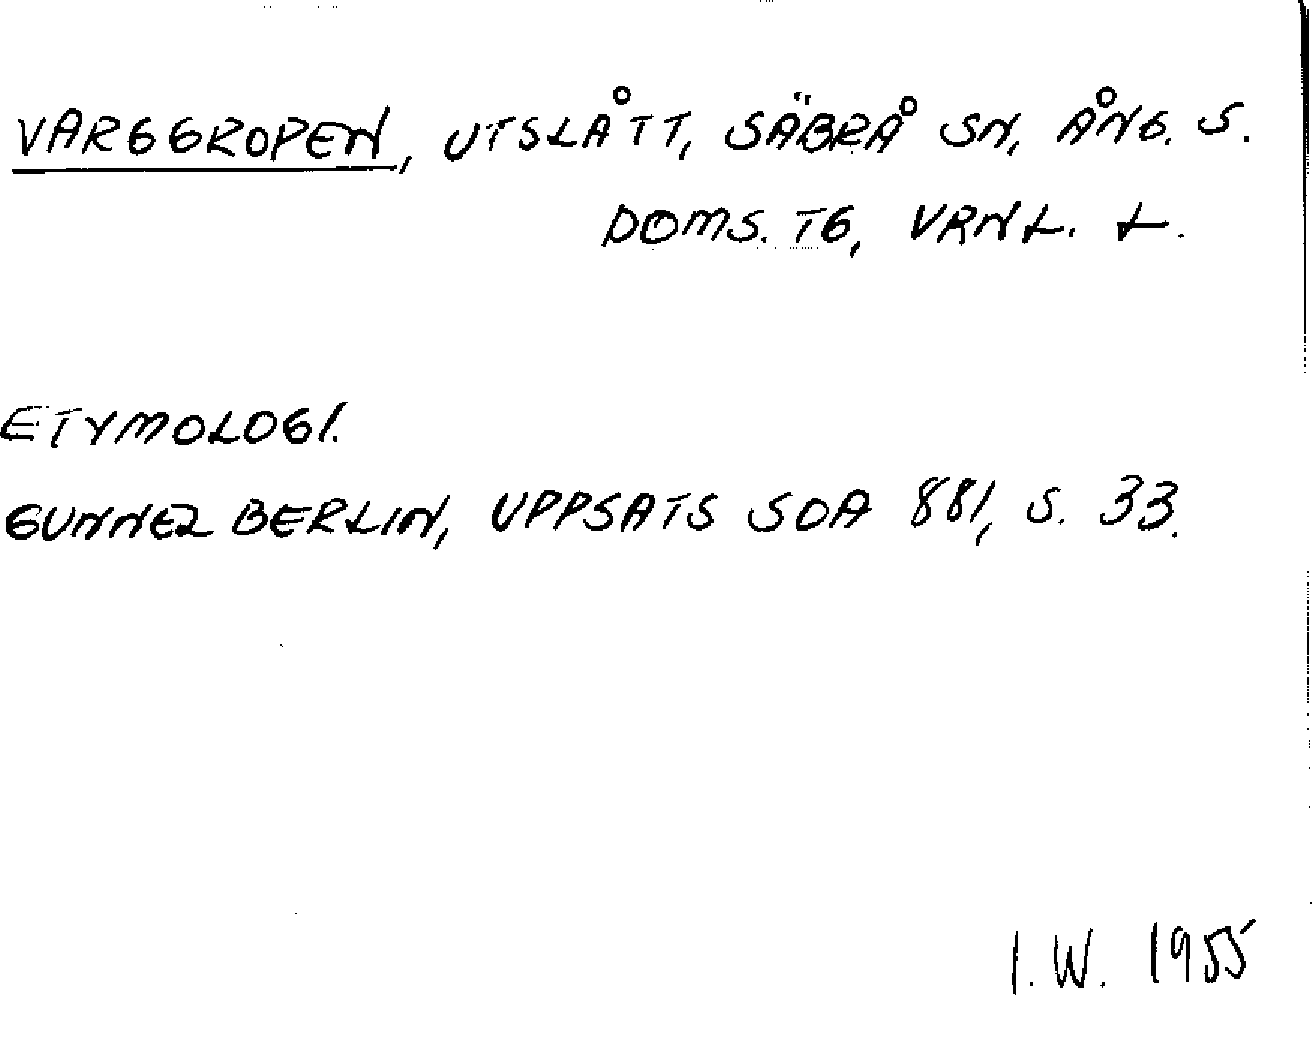 VARGGROPEN, UTSLÅTT, SÄBRÅ SN, ÅNG. S.
DOMS. TG, VRNL. L.
ETYMOLOGI.
GUNNEL BERLIN, UPPSATS SOA 881, S. 33.
I.W. 1955